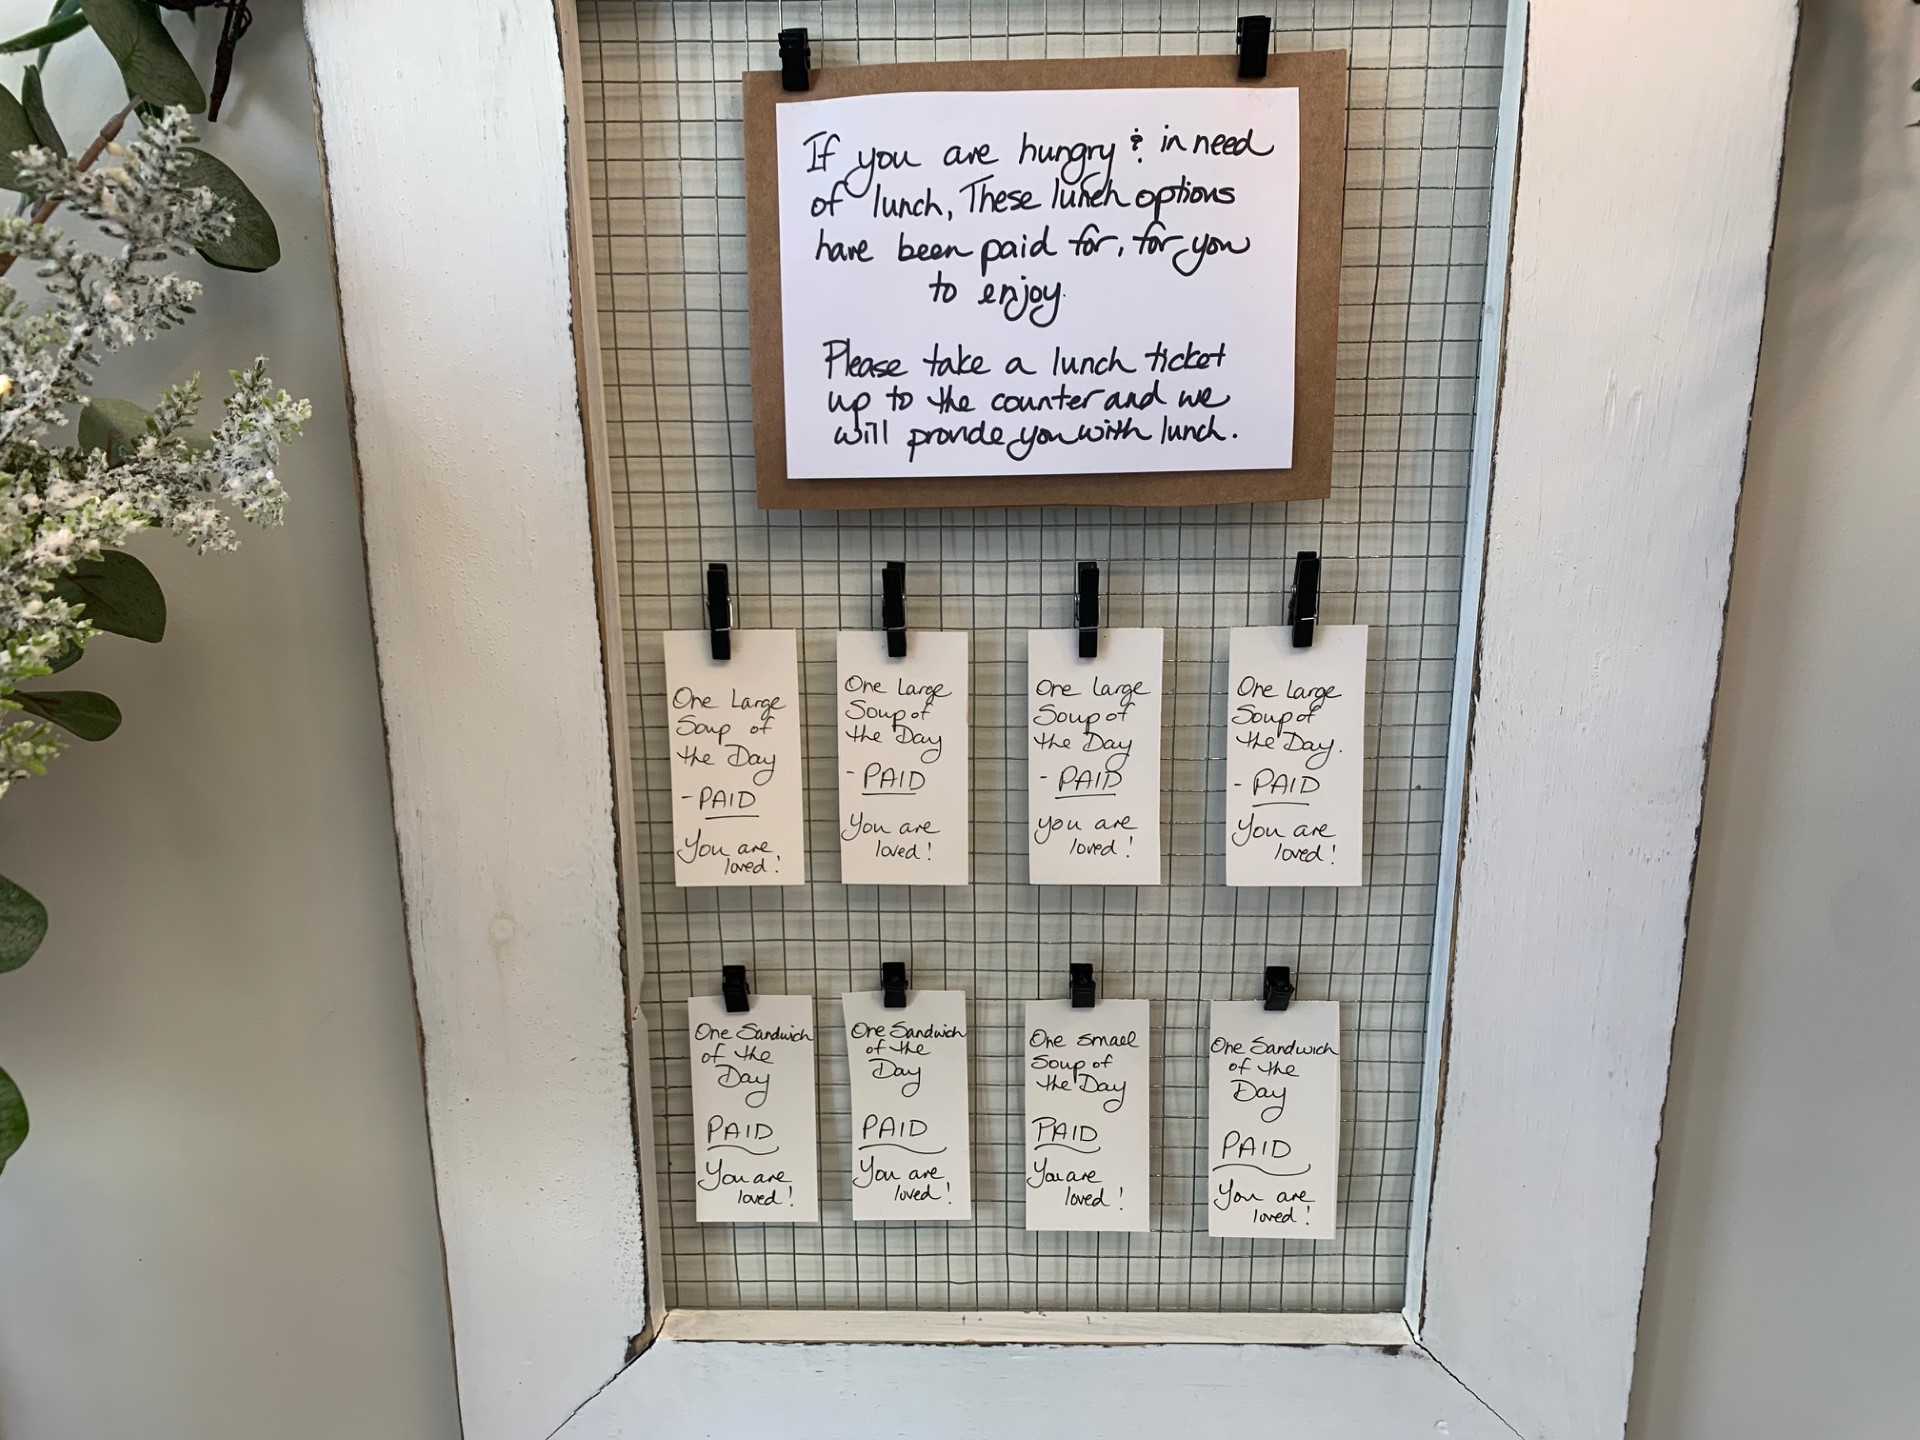 If you are hungry & in need
of lunch, These lunch options
have been paid for, for you
to enjoy.
Please take a lunch ticket
up to the counter and we
will provide you with lunch.
One Large
Soup of
the Day
- PAID
You are
loved!
One Large
Soup of
the Day
- PAID
You are
loved!
One Large
Soup of
the Day
- PAID
you are
loved!
One Large
Soup of
the Day.
- PAID
You are
loved!
One Sandwich
of the
Day
PAID
You are
loved!
One Sandwich
of the
Day
PAID
You are
loved!
One small
Soup of
the Day
PAID
You are
loved!
One Sandwich
of the
Day
PAID
You are
loved!